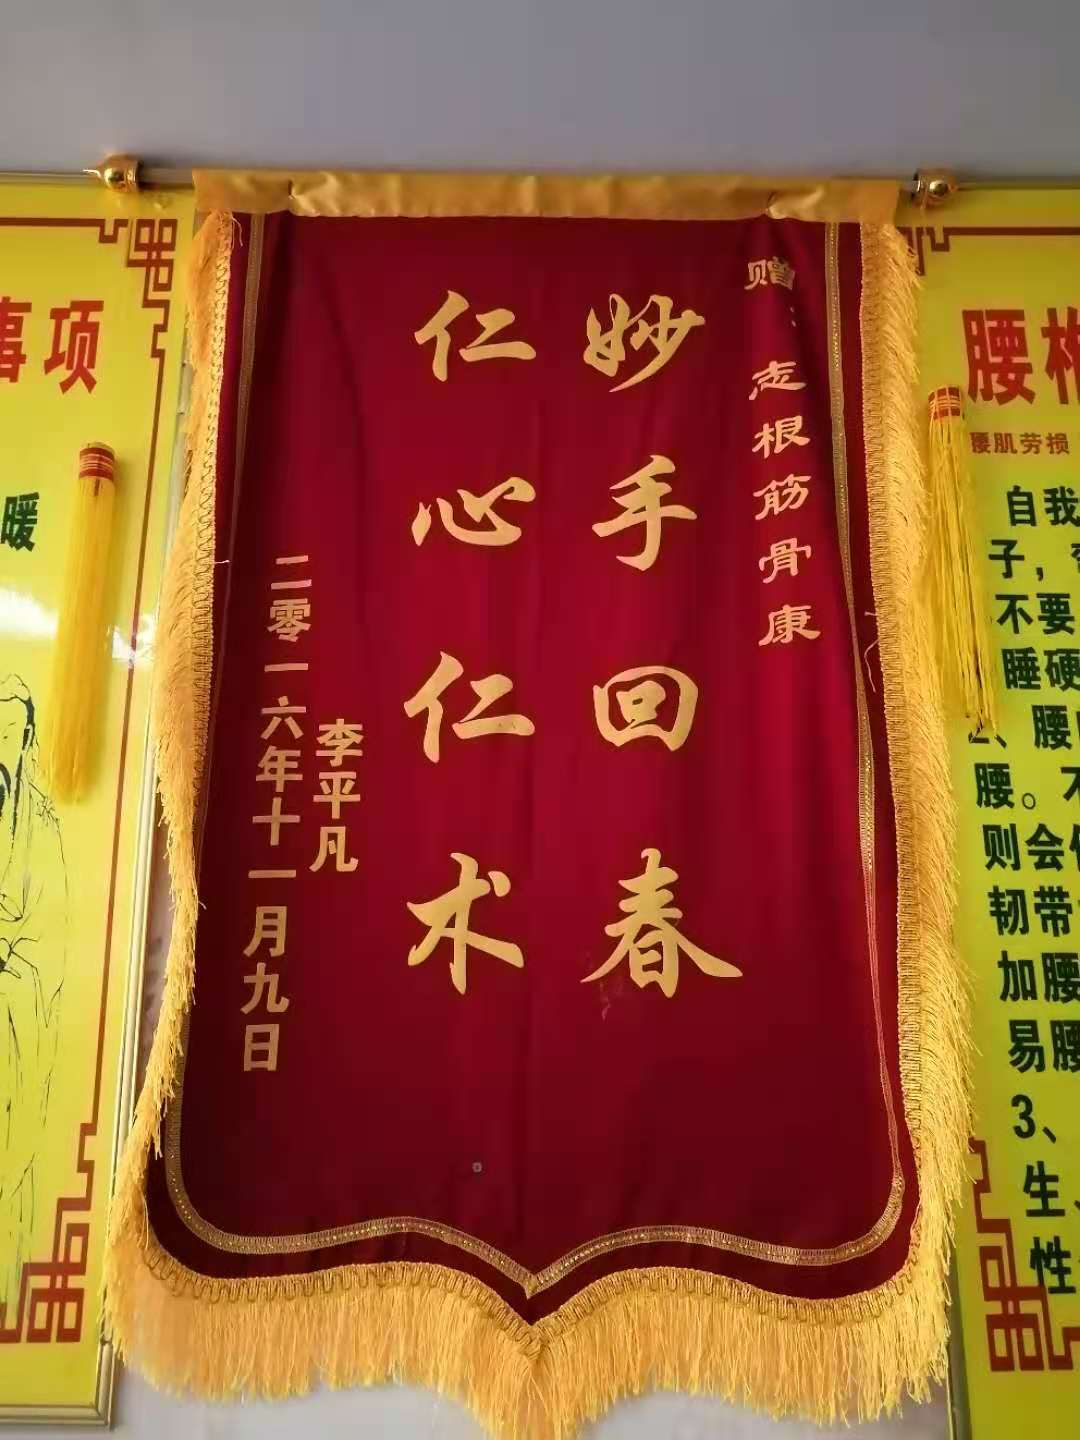 赠：志根筋骨康
妙手回春
仁心仁术
李平凡
二零一六年十一月九日
事项
暖
腰椎
腰肌劳损
自我
子，
不要
睡硬
2、腰
腰。不
则会
韧带
加腰
易腰
3、
生、
性